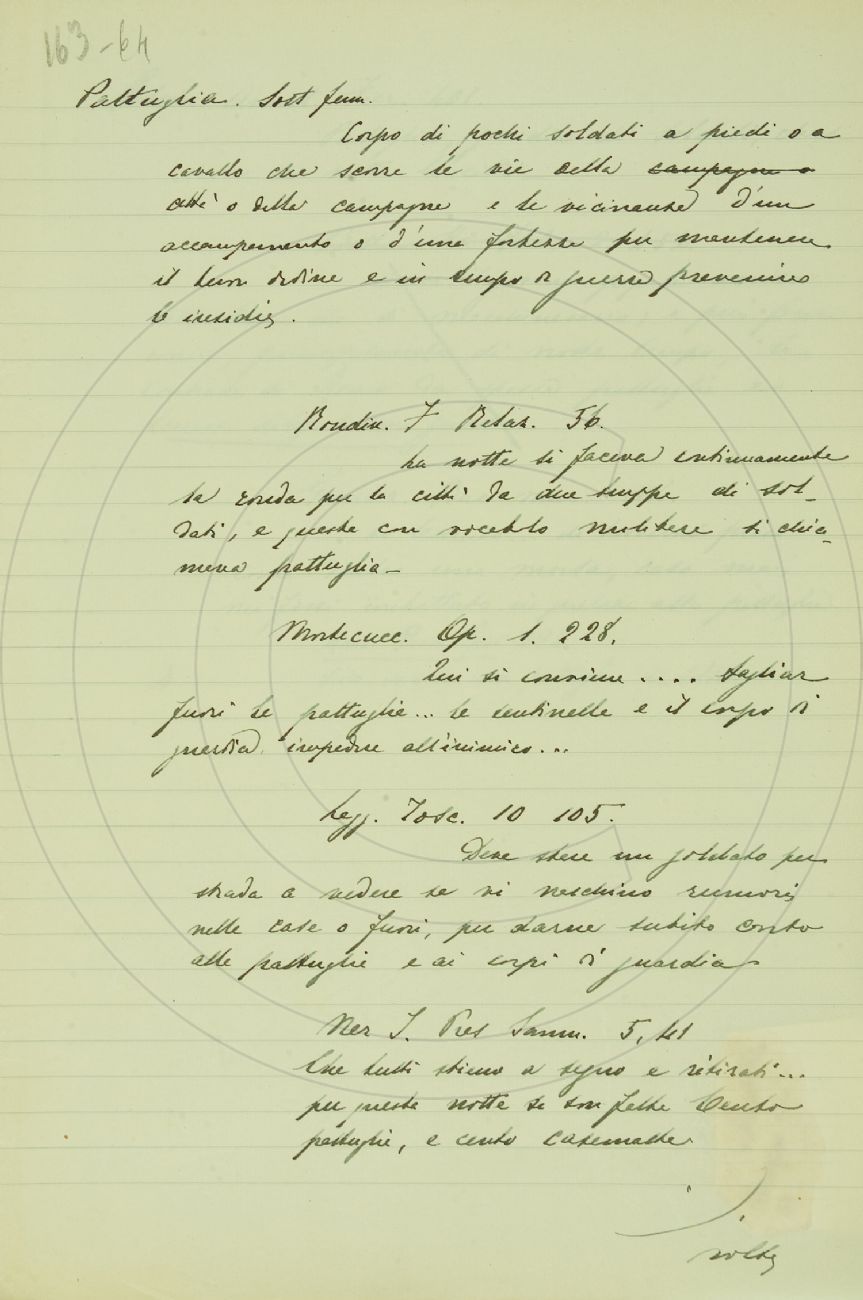 163-64
Pattuglia. Sost femm.
Corpo di pochi soldati a piedi o a
cavallo che scorre le vie della campagna o
città o della campagna e le vicinanze d'un
accampamento o d'una fortezza per mantenere
il buon ordine e in tempo di guerra prevenire
le insidie.
Rondin. F Relaz. 56.
La notte si faceva continuamente
la ronda per la città da due truppe di sol-
dati, e queste con vocabolo militare si chia-
mava pattuglia -
Montecucc. Op. 1. 228.
Qui si conviene .... tagliar
fuori le pattuglie... le sentinelle e il corpo di
guardia, impedire all'inimico...
Legg. Tosc. 10 105.
Deve stare un soldato per
strada a vedere se vi naschino rumori
nelle case o fuori, per darne subito conto
alle pattuglie e ai corpi di guardia
Ner I. Pres Samm. 5,
Che tutti stieno a segno e ritirati...
per questa notte se son fatte Cento
pattuglie, e cento casematte
volta